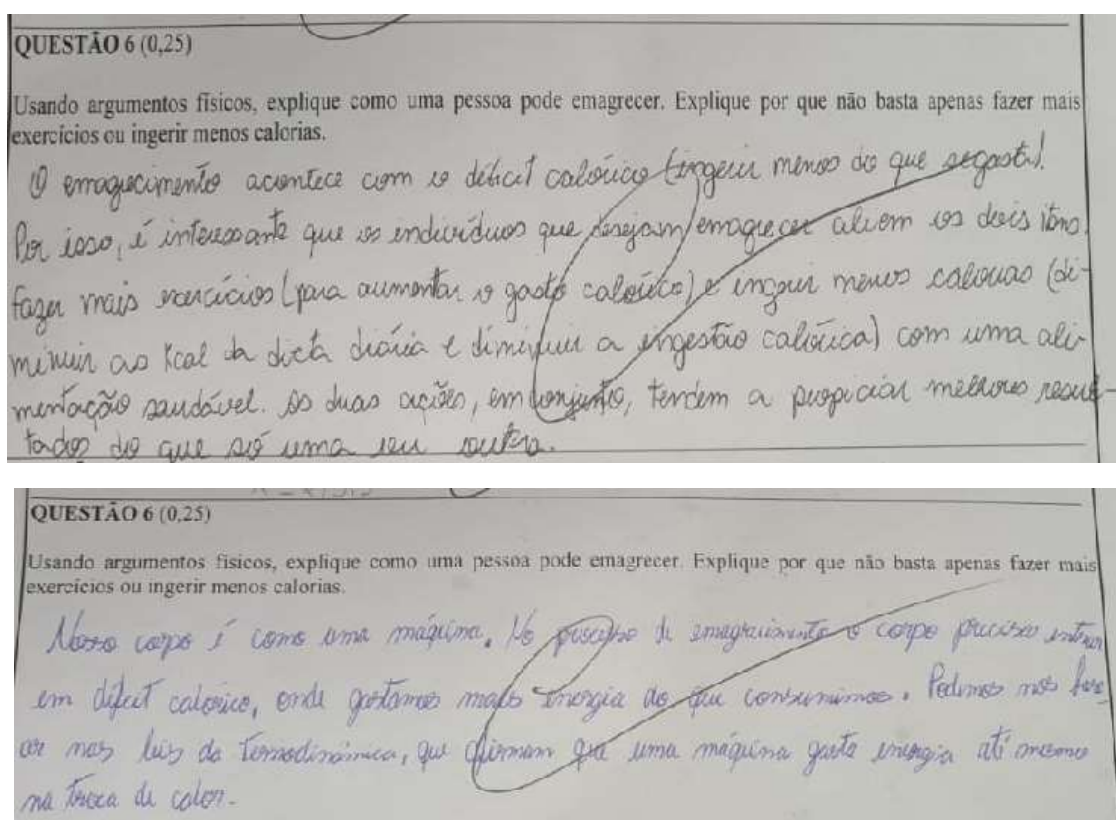 QUESTÃO 6 (0,25)
Usando argumentos físicos, explique como uma pessoa pode emagrecer. Explique por que não basta apenas fazer mais
exercícios ou ingerir menos calorias.
O emagrecimento acontece com o déficit calórico (ingerir menos do que se gasta).
Por isso, é interessante que os indivíduos que desejam emagrecer aliem os dois itens:
fazer mais exercícios (para aumentar o gasto calórico) e ingerir menos calorias (di-
minuir as Kcal da dieta diária e diminuir a ingestão calórica) com uma ali-
mentação saudável. As duas ações, em conjunto, tendem a propiciar melhores resul-
tados do que só uma ou outra.
QUESTÃO 6 (0,25)
Usando argumentos físicos, explique como uma pessoa pode emagrecer. Explique por que não basta apenas fazer mais
exercícios ou ingerir menos calorias.
Nosso corpo é como uma máquina. No processo de emagrecimento o corpo precisa entrar
em déficit calórico, onde gastamos mais energia do que consumimos. Podemos nos
nas leis da termodinâmica, que afirmam que uma máquina gasta energia até mesmo
na troca de calor.